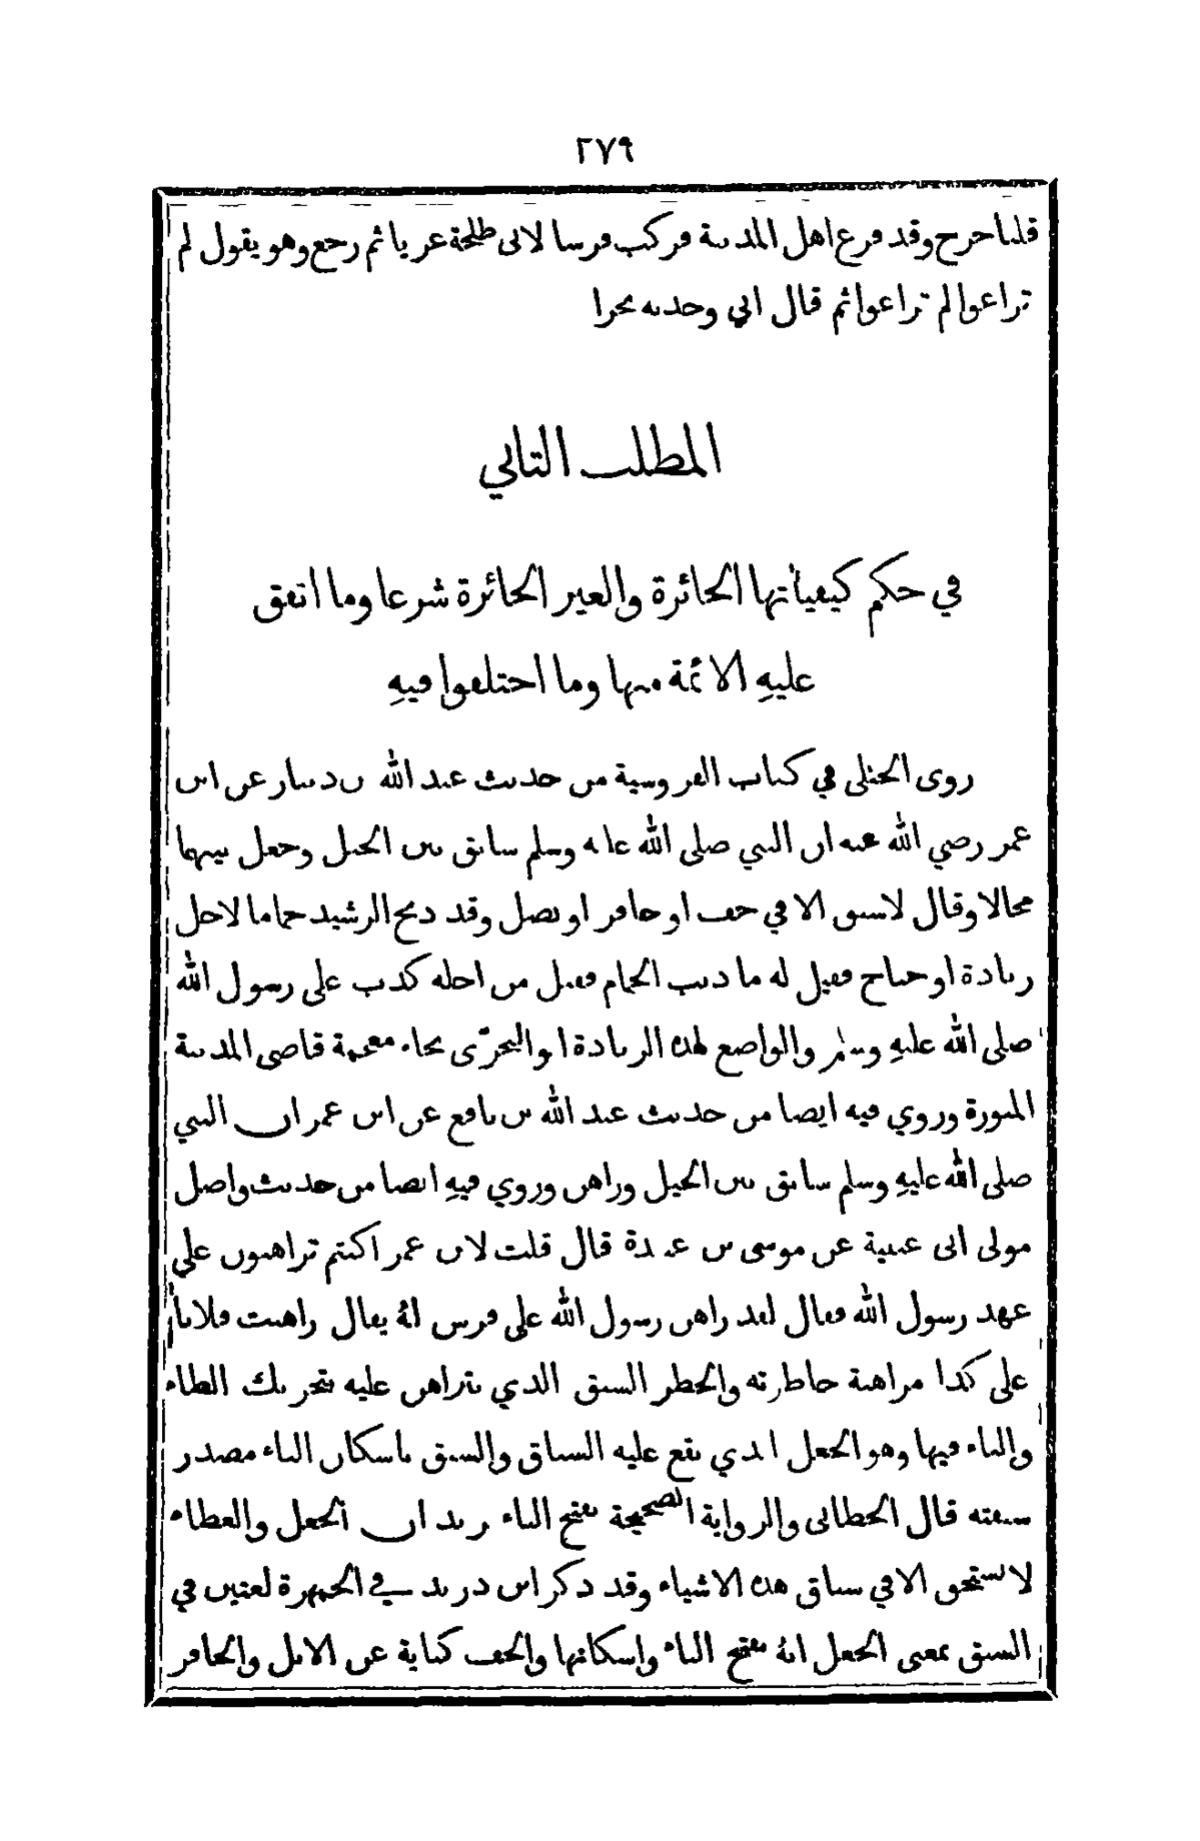 ٢٧٩
قلنا خرج وقد فزع اهل المدينة فركب فرسا لابي طلحة عريا ثم رجع وهو يقول لم
تراعوا لم تراعوا ثم قال اني وجدته بحرا
المطلب الثاني
في حكم كيفياتها الجائزة والغير الجائزة شرعا وما اتفق
عليهِ الائمة منها وما اختلفوا فيهِ
روى الختلي في كتاب الفروسية من حديث عبد الله بن دينار عن ابن
عمر رضي الله عنه ان النبي صلى الله عليه وسلم سابق بين الخيل وجعل بينهما
محالا وقال لا سبق الا في خف او حافر او نصل وقد ذبح الرشيد حماما لاجل
زيادة او جناح فقيل له ما ذنب الحمام فقيل من اجله كذب على رسول الله
صلى الله عليهِ وسلم والواضع لهذه الزيادة ابو البحرّى بخاء معجمة قاضي المدينة
المنورة وروي فيه ايضا من حديث عبد الله بن نافع عن ابن عمر ان النبي
صلى الله عليهِ وسلم سابق بين الخيل وراهن وروي فيهِ ايضا من حديث واصل
مولى ابى عيينة عن موسى بن عبيدة قال قلت لابن عمر اكنتم تراهنون على
عهد رسول الله فقال لقد راهن رسول الله على فرس لهُ يقال راهنت فلاناً
على كذا مراهنة خاطرته والخطر السبق الذي يتراهن عليه بتحريك الطاء
والباء فيها وهو الجعل الذي يقع عليه السباق والسبق باسكان الباء مصدر
سبقته قال الخطابى والرواية الصحيحة بفتح الباء يريد ان الجعل والعطاء
لا يستحق الا في سباق هذه الاشياء وقد ذكر ابن دريد في الجمهرة لغتين في
السبق بمعنى الجعل انهُ بفتح الباء واسكانها والخف كناية عن الابل والحافر